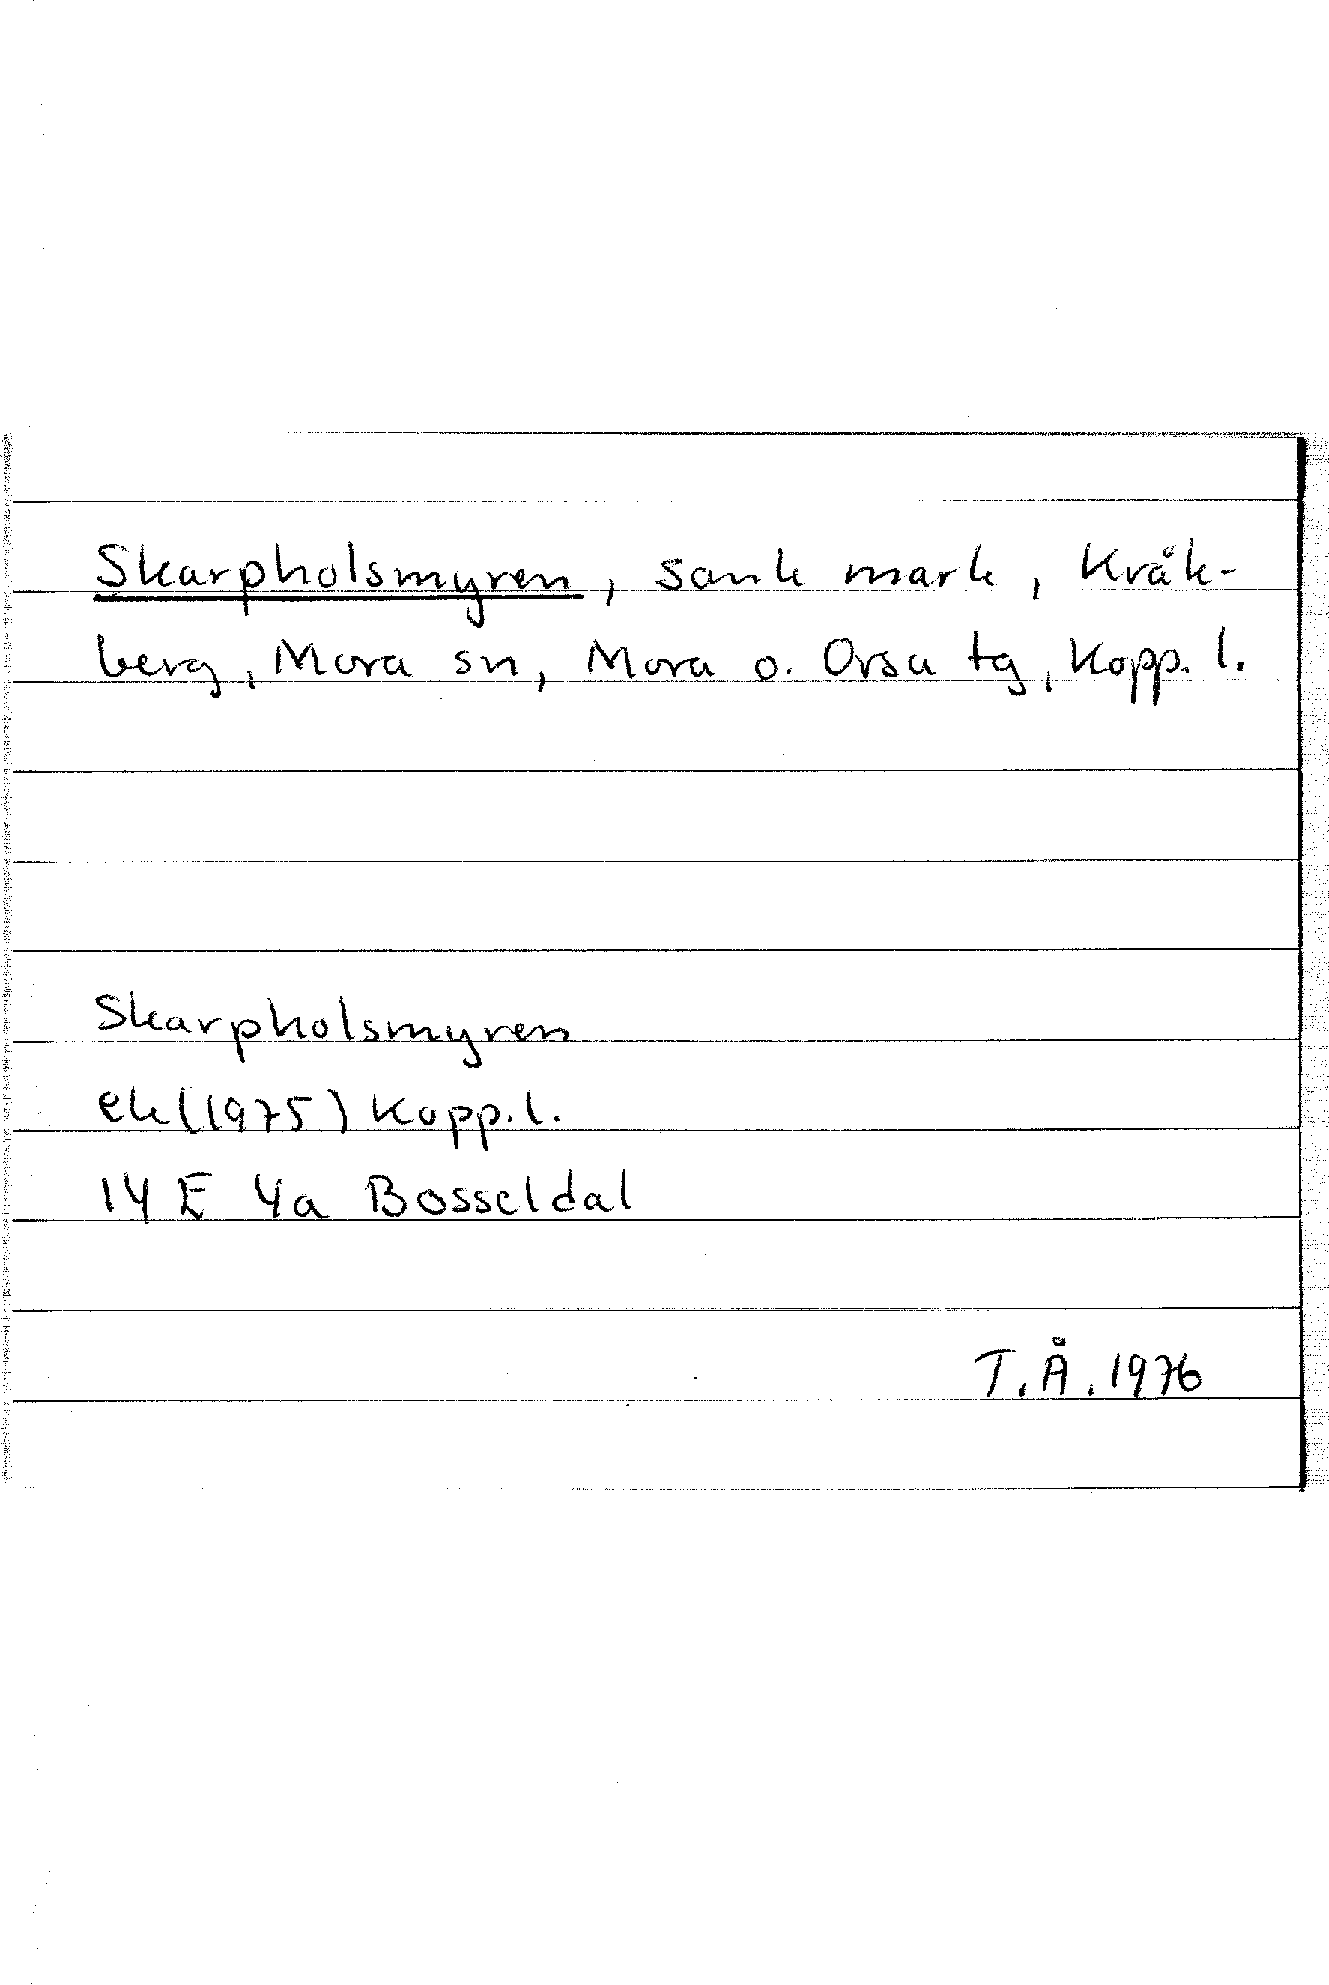 Skarpholsmyren, sank mark, Kråk-
berg, Mora sn, Mora o. Orsa tg, Kopp. l.
Skarpholsmyren
ek(1975) Kopp.l.
14 E 4a Bosseldal
T.Å.1976